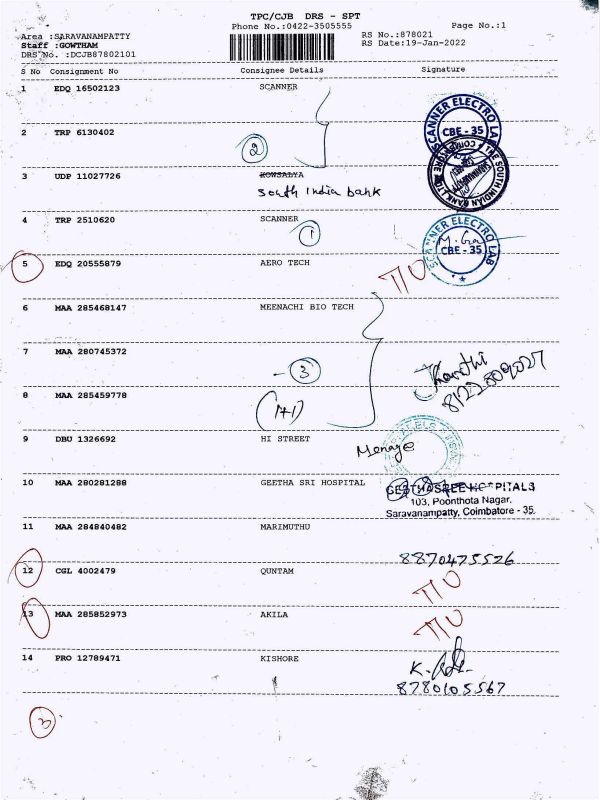 TPC/CJB DRS - SPT
Phone No.:0422-3505555
Page No.:1
Area :SARAVANAMPATTY
Staff :GOWTHAM
DRS No. :DCJB87802101
RS No.:878021
RS Date:19-Jan-2022
S No Consignment No Consignee Details Signature
1 EDQ 16502123 SCANNER
SCANNER ELECTRO LAB
CBE - 35
2 TRP 6130402
2
THE SOUTH INDIAN BANK LTD
3 UDP 11027726 KOWSALYA
South India bank
4 TRP 2510620 SCANNER
1
SCANNER ELECTRO LAB
CBE - 35
5 EDQ 20555879 AERO TECH
6 MAA 285468147 MEENACHI BIO TECH
7 MAA 280745372
- 3
8 MAA 285459778
(1+1)
8122809027
9 DBU 1326692 HI STREET
Menage
10 MAA 280281288 GEETHA SRI HOSPITAL
GEETHASREE HOSPITALS
103, Poonthota Nagar,
Saravanampatty, Coimbatore - 35.
11 MAA 284840482 MARIMUTHU
8870475526
12 CGL 4002479 QUNTAM
13 MAA 285852973 AKILA
14 PRO 12789471 KISHORE
8780105567
3